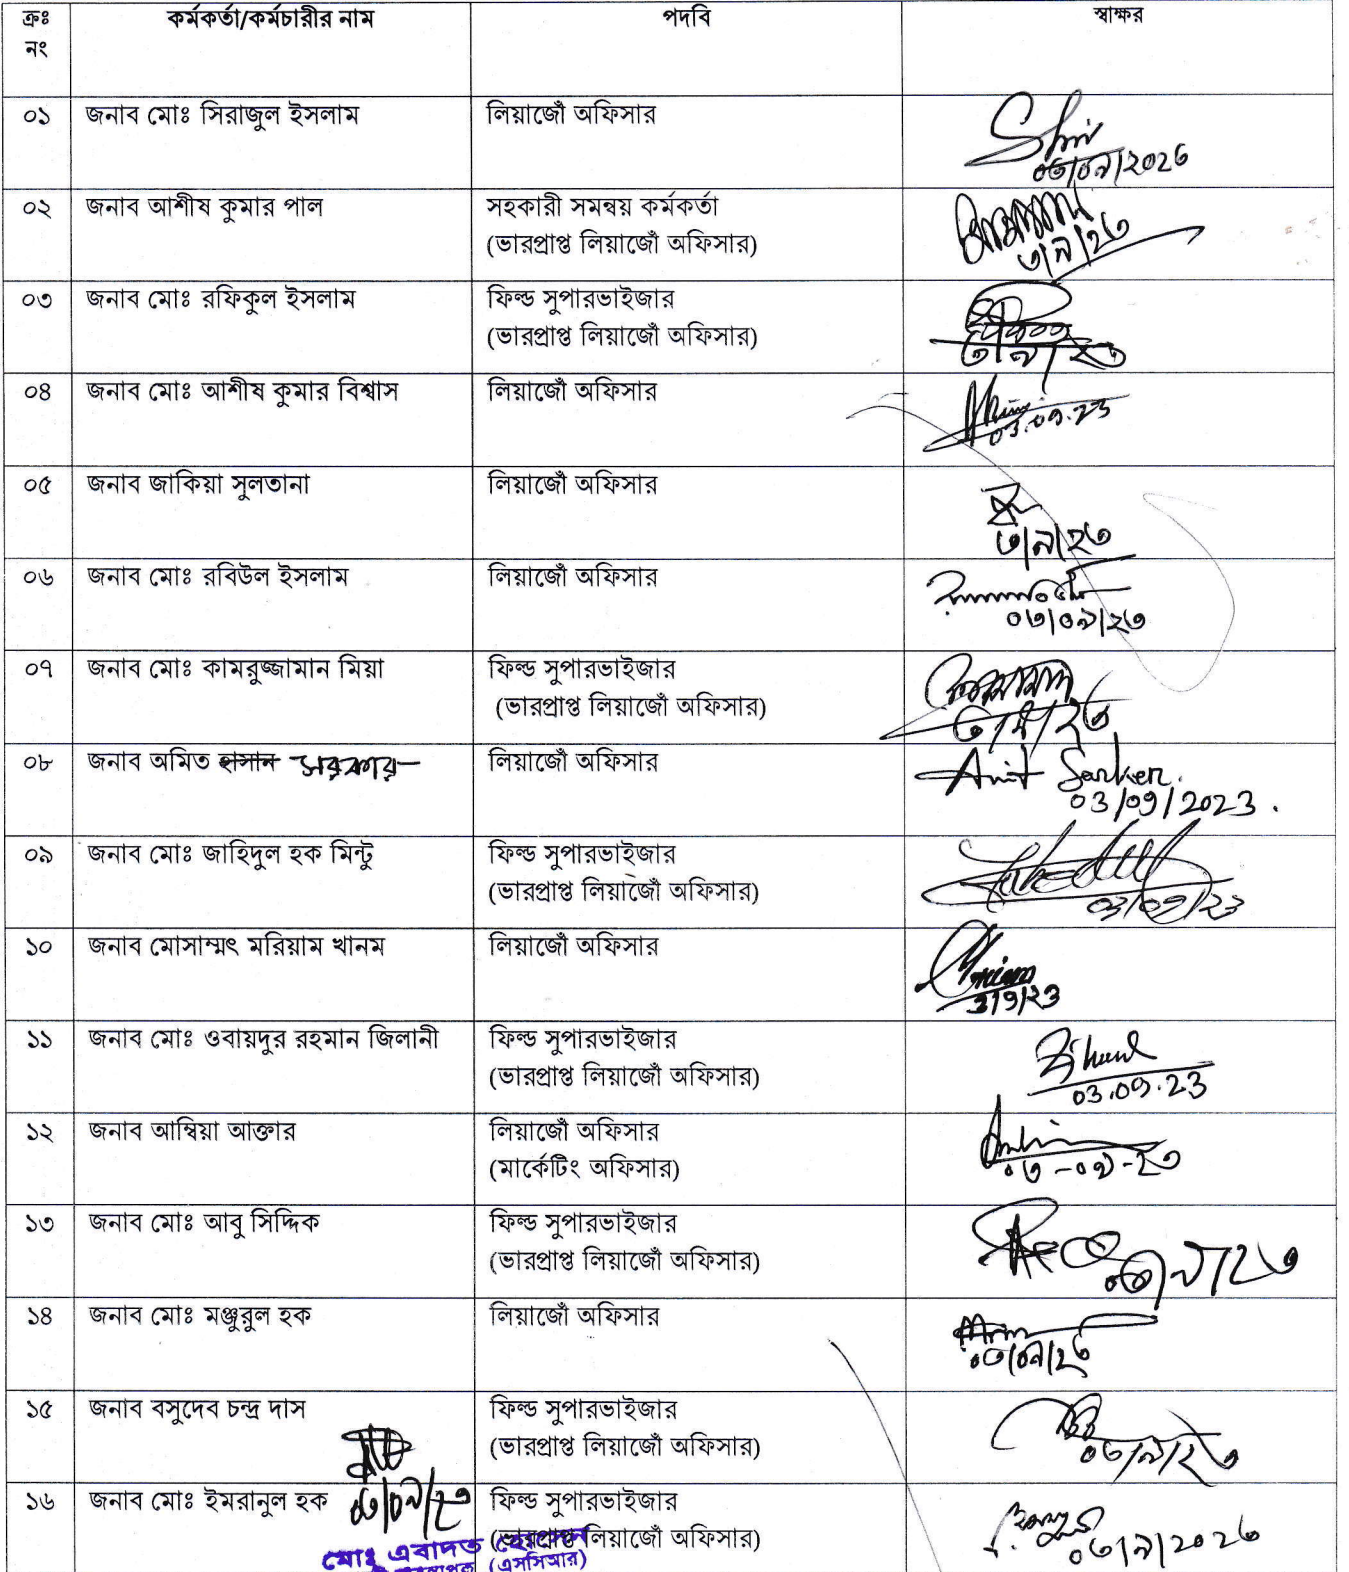 ক্রঃ নং	কর্মকর্তা/কর্মচারীর নাম	পদবি	স্বাক্ষর
০১	জনাব মোঃ সিরাজুল ইসলাম	লিয়াজোঁ অফিসার
০৩/০৯/২০২৩
০২	জনাব আশীষ কুমার পাল	সহকারী সমন্বয় কর্মকর্তা
(ভারপ্রাপ্ত লিয়াজোঁ অফিসার)	৩/৯/২৩
০৩	জনাব মোঃ রফিকুল ইসলাম	ফিল্ড সুপারভাইজার
(ভারপ্রাপ্ত লিয়াজোঁ অফিসার)	৩/৯/২৩
০৪	জনাব মোঃ আশীষ কুমার বিশ্বাস	লিয়াজোঁ অফিসার
03.09.23
০৫	জনাব জাকিয়া সুলতানা	লিয়াজোঁ অফিসার
৩/৯/২৩
০৬	জনাব মোঃ রবিউল ইসলাম	লিয়াজোঁ অফিসার
০৩/০৯/২৩
০৭	জনাব মোঃ কামরুজ্জামান মিয়া	ফিল্ড সুপারভাইজার
(ভারপ্রাপ্ত লিয়াজোঁ অফিসার)	৩/৯/২৩
০৮	জনাব অমিত হাসান সরকার	লিয়াজোঁ অফিসার	Amit Sarker.
03/09/2023.
০৯	জনাব মোঃ জাহিদুল হক মিন্টু	ফিল্ড সুপারভাইজার
(ভারপ্রাপ্ত লিয়াজোঁ অফিসার)	03/09/23
১০	জনাব মোসাম্মৎ মরিয়াম খানম	লিয়াজোঁ অফিসার
3/9/23
১১	জনাব মোঃ ওবায়দুর রহমান জিলানী	ফিল্ড সুপারভাইজার
(ভারপ্রাপ্ত লিয়াজোঁ অফিসার)	03.09.23
১২	জনাব আম্বিয়া আক্তার	লিয়াজোঁ অফিসার
(মার্কেটিং অফিসার)	০৩-০৯-২৩
১৩	জনাব মোঃ আবু সিদ্দিক	ফিল্ড সুপারভাইজার
(ভারপ্রাপ্ত লিয়াজোঁ অফিসার)	০৩/৯/২৩
১৪	জনাব মোঃ মঞ্জুরুল হক	লিয়াজোঁ অফিসার
০৩/০৯/২৩
১৫	জনাব বসুদেব চন্দ্র দাস	ফিল্ড সুপারভাইজার
(ভারপ্রাপ্ত লিয়াজোঁ অফিসার)	০৩/৯/২৩
১৬	জনাব মোঃ ইমরানুল হক	০৩/০৯/২৩	ফিল্ড সুপারভাইজার
(ভারপ্রাপ্ত লিয়াজোঁ অফিসার)	০৩/৯/২০২৩
মোঃ এবাদত হোসেন
(এসসিআর)